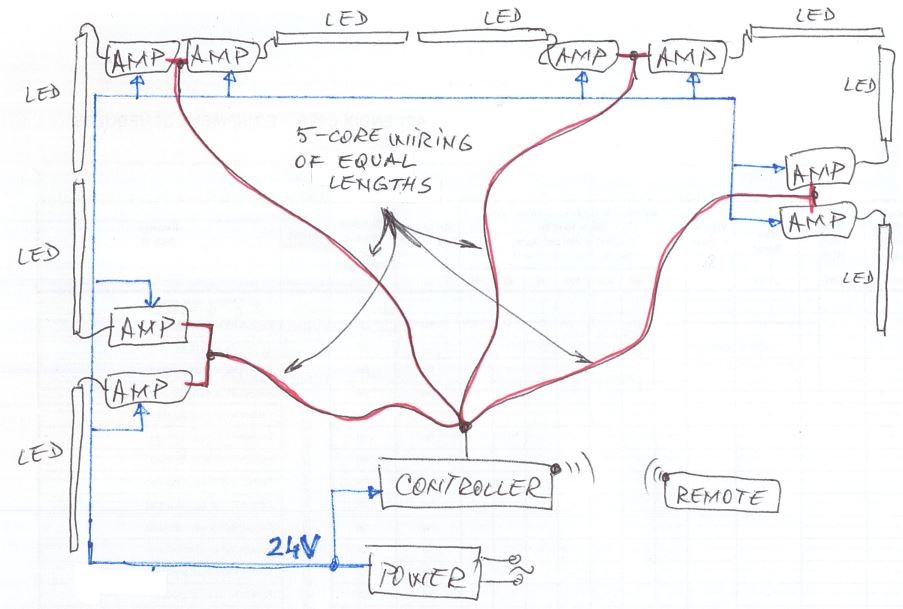 LED
LED
LED
AMP
AMP
AMP
AMP
LED
LED
5-CORE WIRING
OF EQUAL
LENGTHS
AMP
AMP
LED
LED
AMP
AMP
LED
CONTROLLER
REMOTE
24V
POWER
~